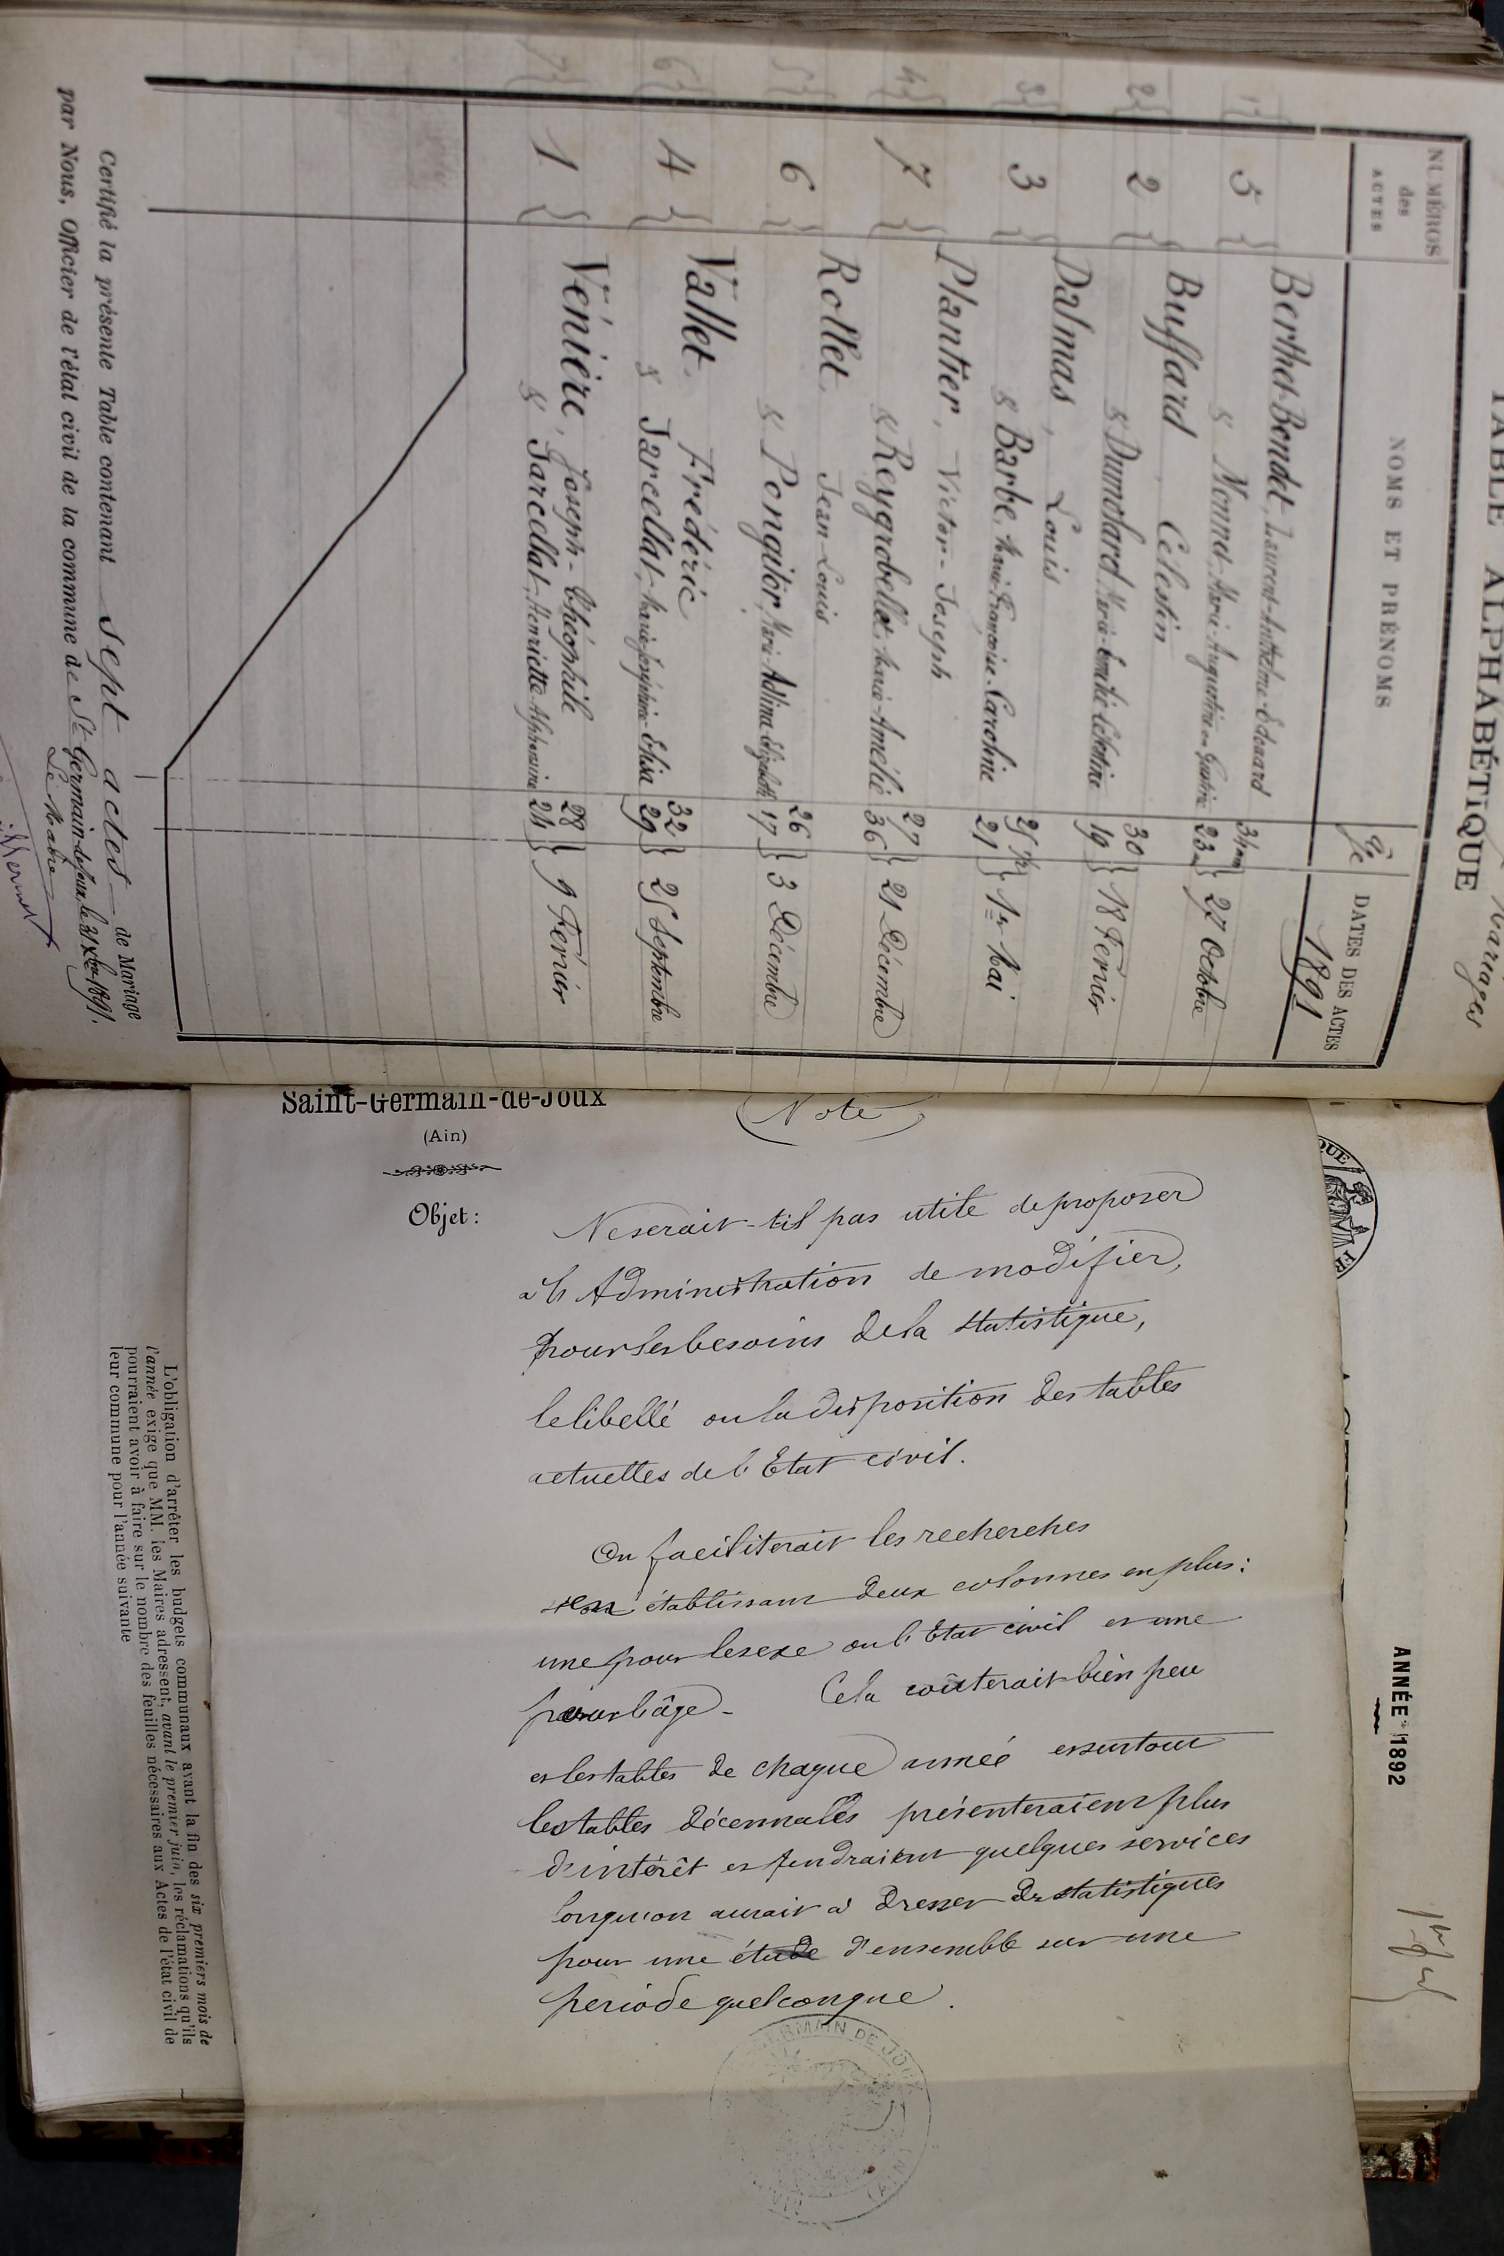 TABLE ALPHABÉTIQUE
Mariages
NUMÉROS des ACTES
NOMS ET PRÉNOMS
Âge
DATES DES ACTES
1891
5 Berthet-Bondet, Laurent-Anthelme-Edouard 34 ans
& Monnet, Marie-Augustine 23 27 Octobre
2 Buffard, Célestin 30
& Dumolard Marie-Emilie 19 18 Fevrier
3 Dalmas, Louis 25
& Barbe, Marie-Françoise-Caroline 21 1er Mai
7 Plantier, Victor-Joseph 27
& Reygrobellet, Marie-Amélie 36 21 Décembre
6 Rollet, Jean-Louis 26
& Ponçitor, Marie-Adlina 17 3 Décembre
4 Vallet, Frédéric 32
& Jarcellat, Marie-Joséphine-Elisa 29 25 Septembre
1 Vénière, Joseph-Théophile 28
& Jarcellat, Henriette-Alphonsine 24 9 Ferier
Certifié la présente Table contenant sept actes de Mariage
par Nous, Officier de l'état civil de la commune de St Germain-de-Joux, le 31 Xbre 1891.
Le Maire
Saint-Germain-de-Joux
(Ain)
Note
Objet :
Ne serait-til pas utile de proposer
à l'Administration de modifier,
pour les besoins de la statistique,
le libellé ou la disposition des tables
actuelles de l'Etat civil.
On faciliterait les recherches
en établissant deux colonnes en plus :
une pour le sexe ou l'Etat civil et une
pour l'âge - Cela coûterait bien peu
et les tables de chaque année et surtout
les tables décennales présenteraient plus
d'intérêt et rendraient quelques services
lorsqu'on aurait à dresser de statistiques
pour une étude d'ensemble sur une
periode quelconque.
GERMAIN DE JOUX
(AIN)
L'obligation d'arrêter les budgets communaux avant la fin des six premiers mois de
l'année exige que MM. les Maires adressent, avant le premier juin, les réclamations qu'ils
pourraient avoir à faire sur le nombre des feuilles nécessaires aux Actes de l'état civil de
leur commune pour l'année suivante
ANNÉE 1892